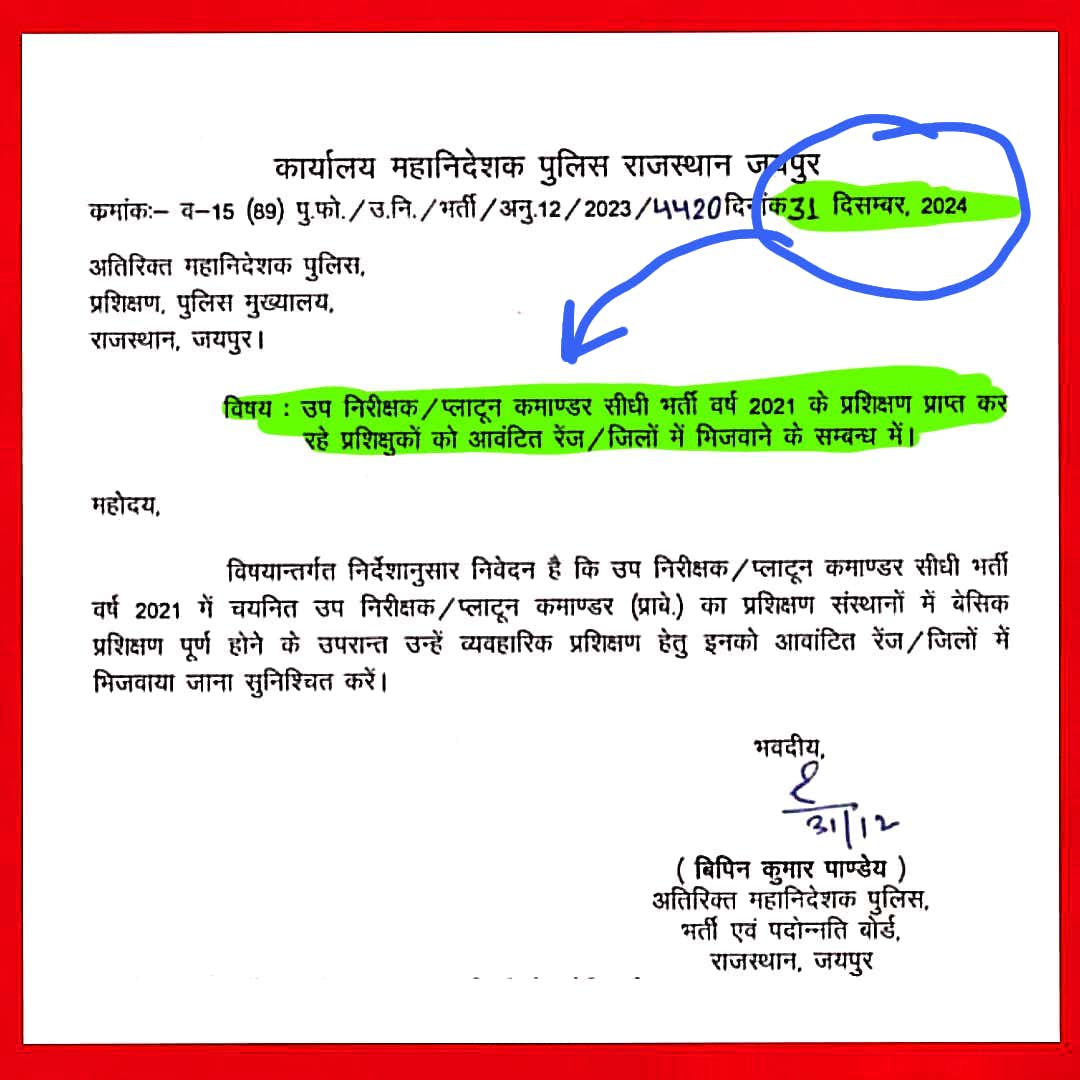 कार्यालय महानिदेशक पुलिस राजस्थान जयपुर
कमांकः– व–15 (89) पु.फो./उ.नि./भर्ती/अनु.12/2023/4420 दिनांक 31 दिसम्बर, 2024
अतिरिक्त महानिदेशक पुलिस,
प्रशिक्षण, पुलिस मुख्यालय,
राजस्थान, जयपुर।
विषय : उप निरीक्षक/प्लाटून कमाण्डर सीधी भर्ती वर्ष 2021 के प्रशिक्षण प्राप्त कर
रहे प्रशिक्षुकों को आवंटित रेंज/जिलों में भिजवाने के सम्बन्ध में।
महोदय,
विषयान्तर्गत निर्देशानुसार निवेदन है कि उप निरीक्षक/प्लाटून कमाण्डर सीधी भर्ती
वर्ष 2021 में चयनित उप निरीक्षक/प्लाटून कमाण्डर (प्राबे.) का प्रशिक्षण संस्थानों में बेसिक
प्रशिक्षण पूर्ण होने के उपरान्त उन्हें व्यवहारिक प्रशिक्षण हेतु इनको आवांटित रेंज/जिलों में
भिजवाया जाना सुनिश्चित करें।
भवदीय,
31/12
( बिपिन कुमार पाण्डेय )
अतिरिक्त महानिदेशक पुलिस,
भर्ती एवं पदोन्नति बोर्ड,
राजस्थान, जयपुर